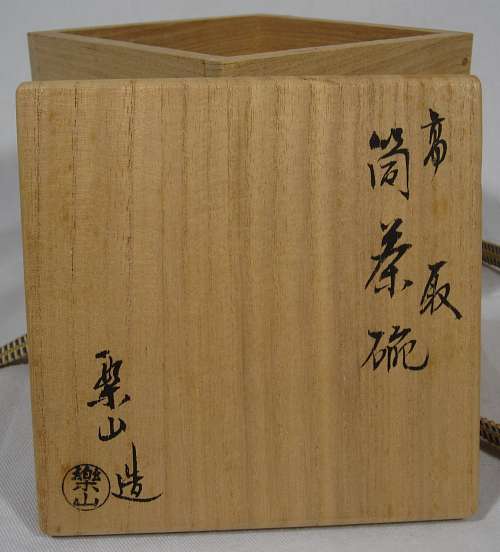 高取
筒茶碗
楽山
造
樂山